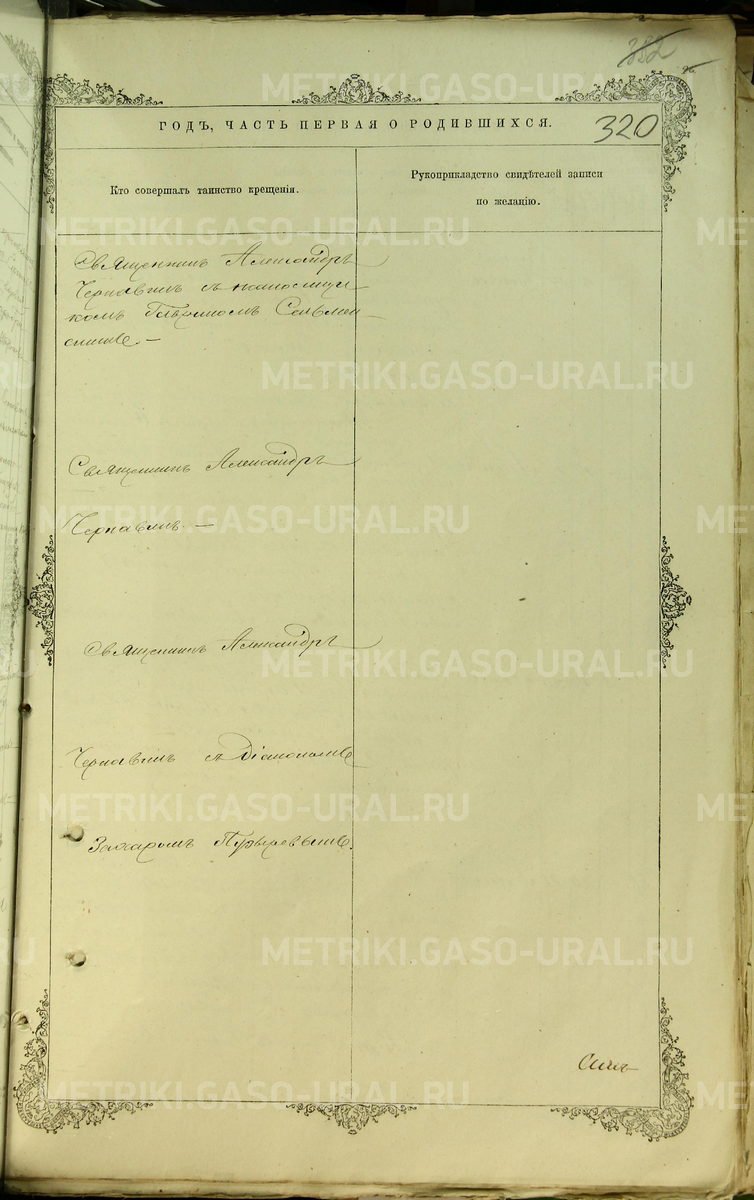 352
320
ГОДЪ, ЧАСТЬ ПЕРВАЯ О РОДИВШИХСЯ.
Кто совершалъ таинство крещенія.
Рукоприкладство свидѣтелей записи
по желанію.
Священникъ Александръ
Чернавинъ съ
комъ
Священникъ Александръ
Чернавинъ. —
Священникъ Александръ
Чернавинъ съ Діакономъ
Захаромъ
METRIKI.GASO-URAL.RU